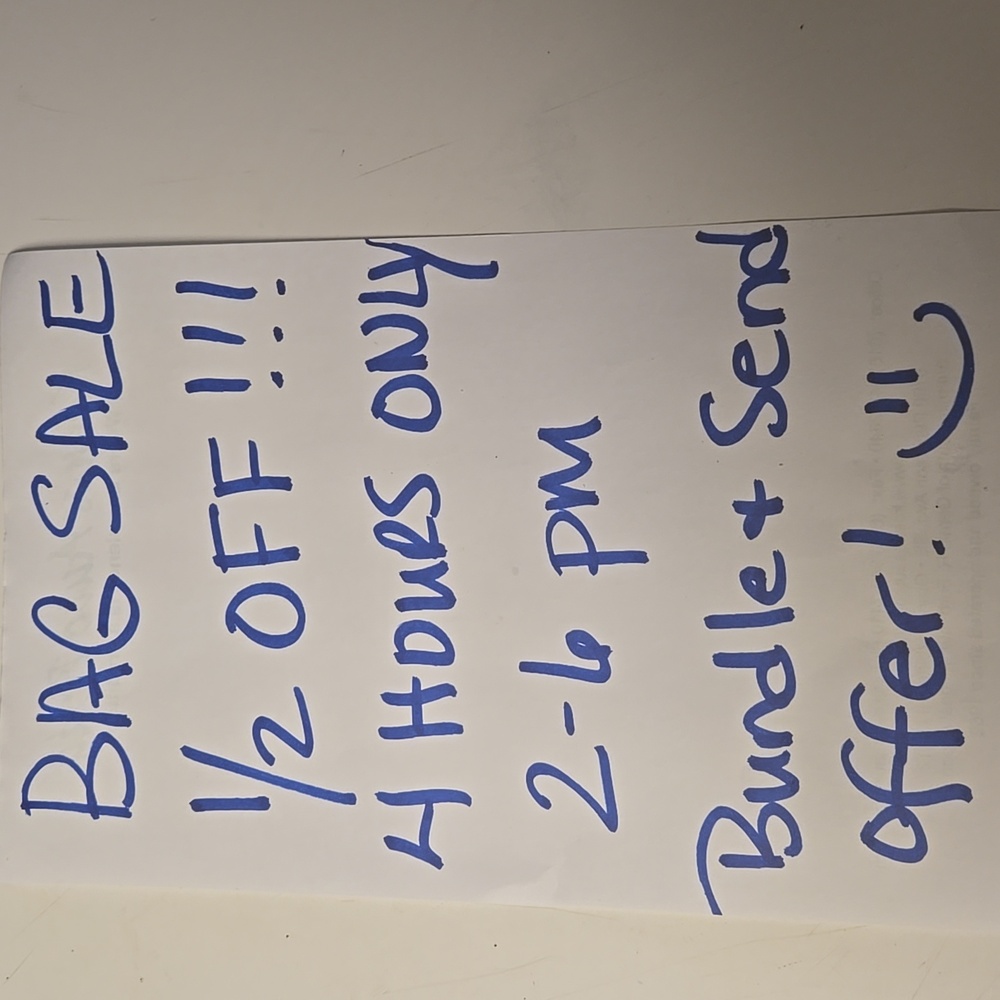 BAG SALE
1/2 OFF !!!
4 HOURS ONLY
2-6 pm
Bundle + Send
offer! =)